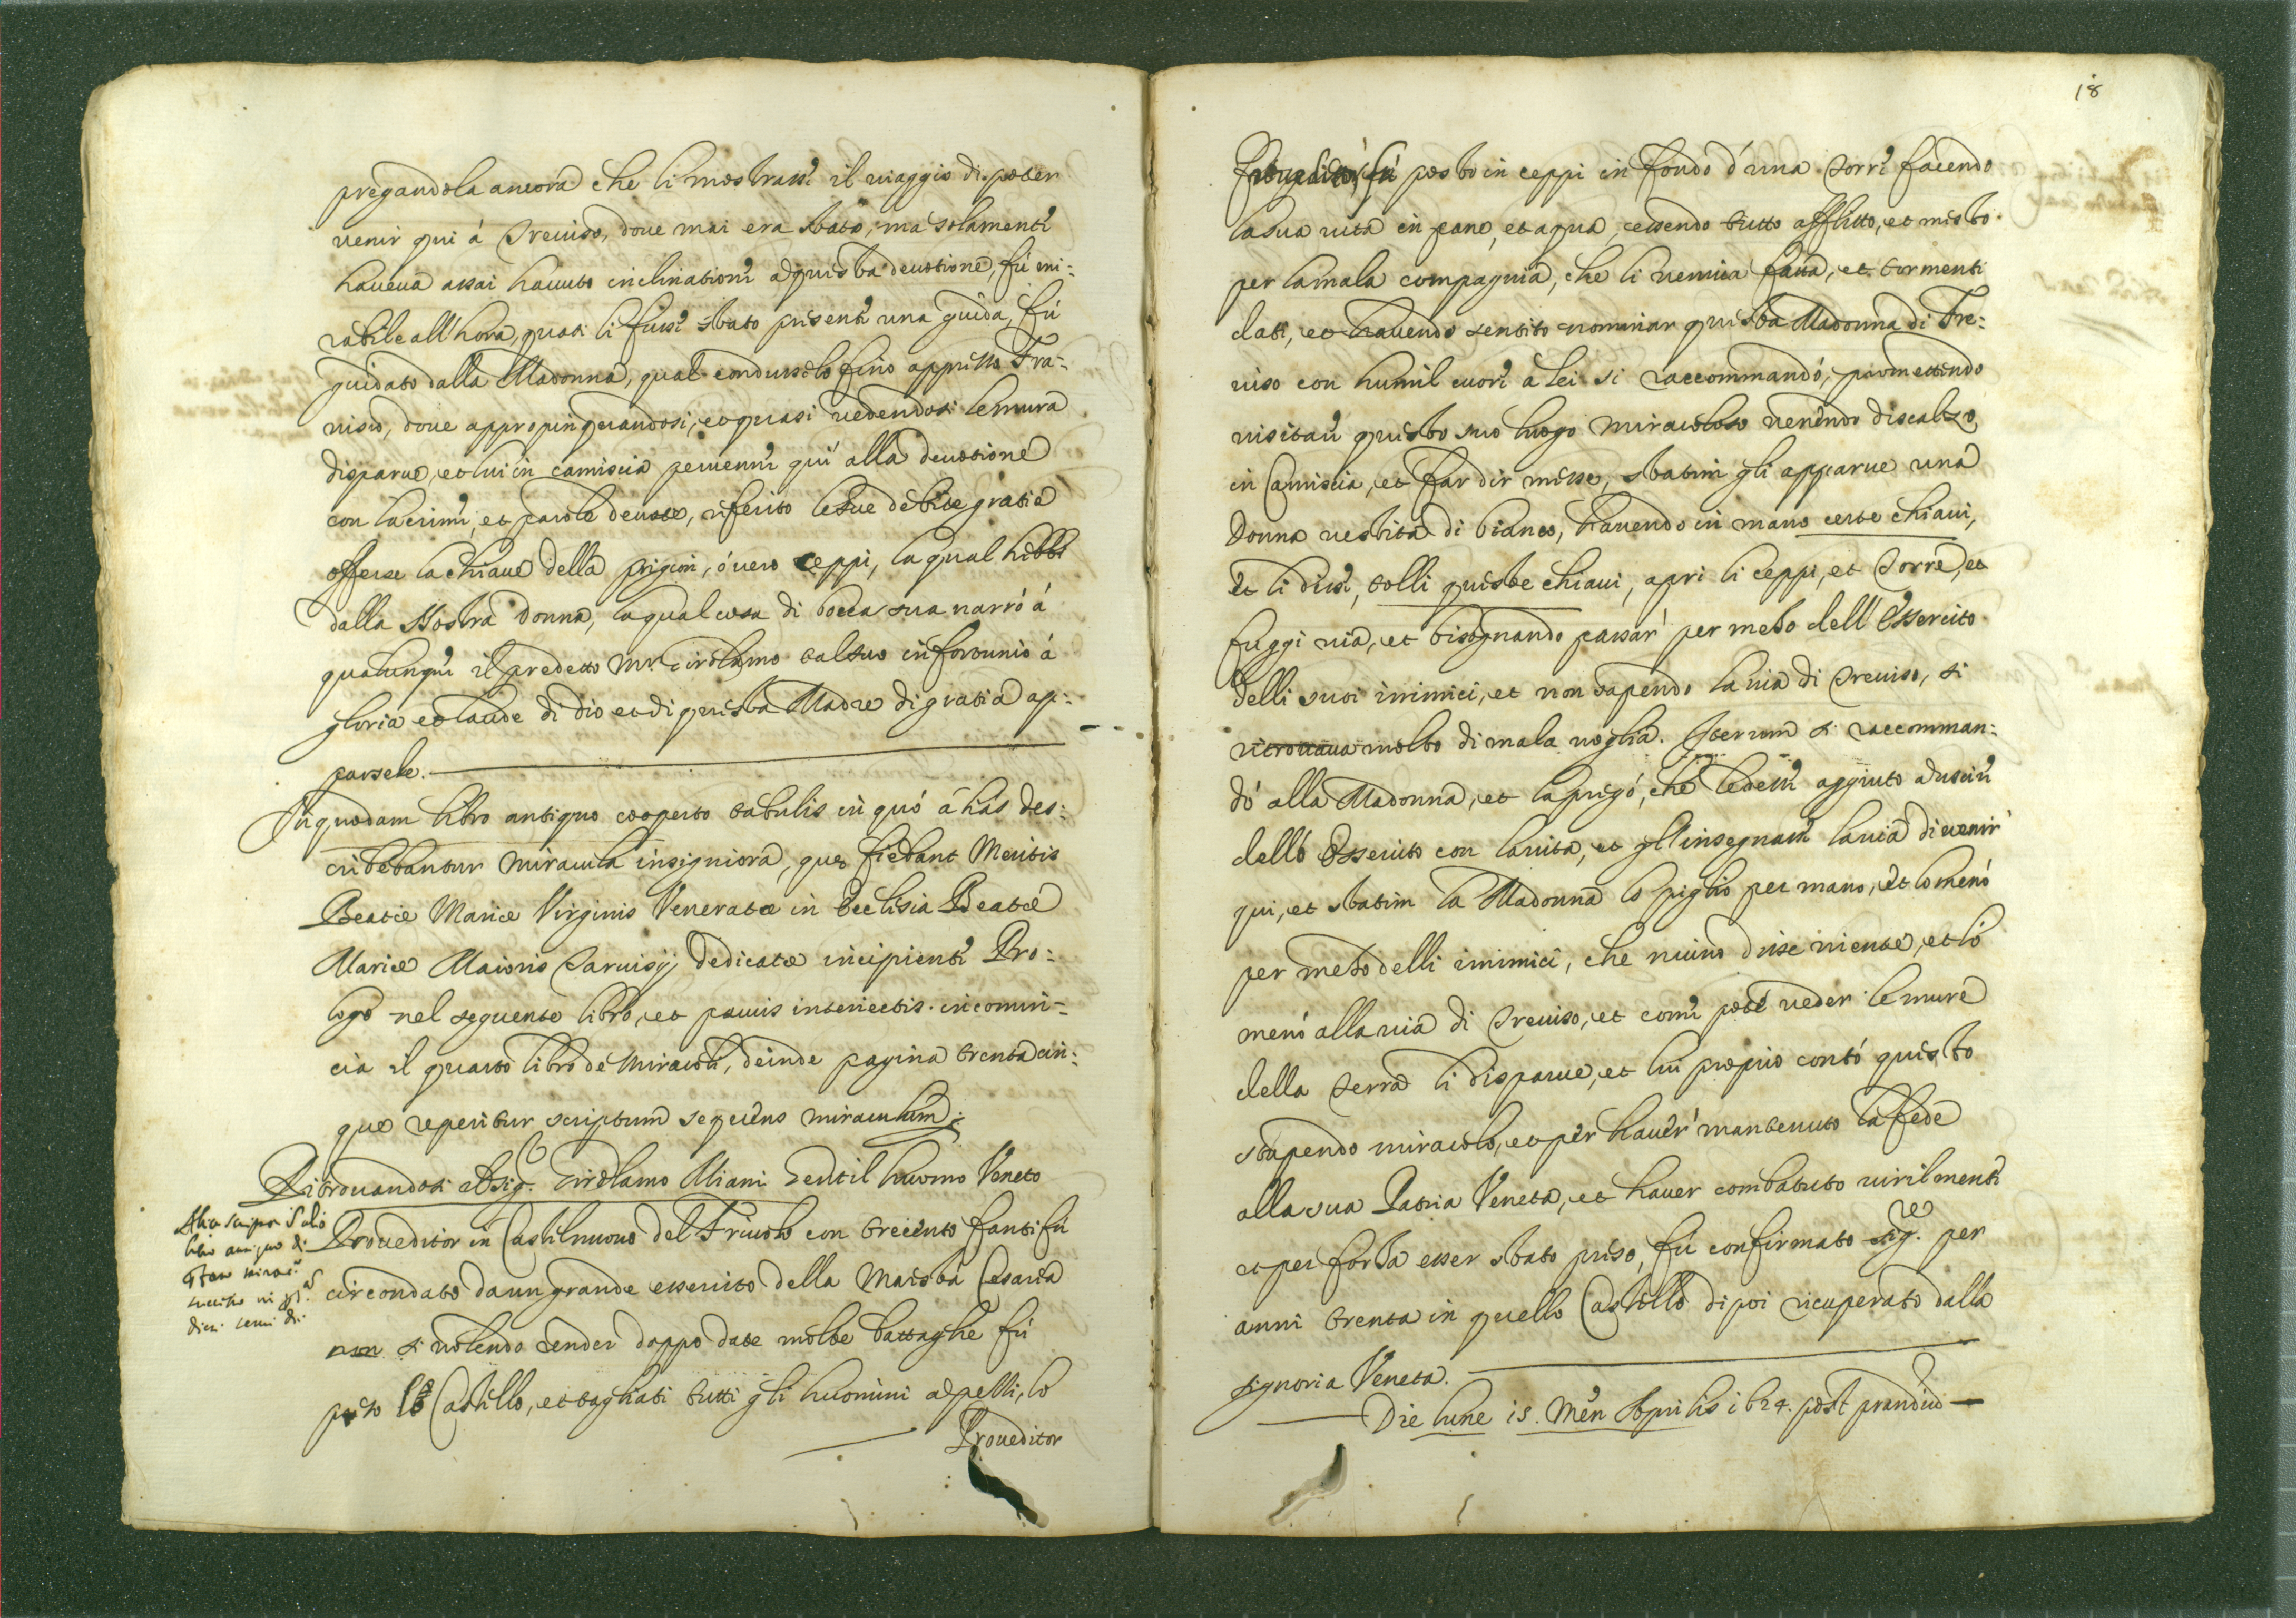 pregandola ancora che li mostrasse il viaggio di poter
venir qui á Treviso, doue mai era stato, ma solamente
haueua assai hauuto inclinatione a questa deuotione, fú mi:
rabile all'hora, quasi li fusse stato presente una guida, fú
guidato dalla Madonna, qual condusselo fino appresso Tra:
uiso, doue appropinquandosi, et quasi uedendosi le mura
disparue, et lui in camiscia peruenne qui alla deuotione
con lacrime, et parole deuote, riferito le sue debite gratie
offerse la chiaue della prigion, óuero ceppi, la qual hebbe
dalla Nostra Donna, la qual cosa di bocca sua narró á
qualunque il predetto Mr Cirolamo tal suo infortunio á
gloria et laude di Dio et di questa Madre di gratia ap:
parsele.
In quodam libro antiquo cooperto tabulis in quo á has des:
cribebantur miracula insigniora, que fiebant Meritis
Beatæ Mariæ Virginis Veneratæ in Ecclesia Beatæ
Mariæ Maioris Taruisij dedicatæ incipiente Pro:
logo nel seguente libro, et paucis interiectis. incomin-
cia il quarto libro de Miracoli, deinde pagina trenta cin:
que reperitur scriptum sequens miraculum:
Ritrouandosi el Sig. Girolamo Miani Gentil huomo Veneto
Proueditor in Castelnuouo del Friuolo con trecento fanti fú
circondato da un grande essercito della Maestá Cesarea
non si uolendo render doppo date molte battaglie fú
preso lo Castello, et tagliati tutti gli huomini a pelli, lo
Proueditor
libro antiquo di
18
Proueditor fú posto in ceppi in fondo d'una Torre facendo
la sua uita in pane, et aqua, essendo tutto afflitto, et mesto
per la mala compagnia, che li ueniua fatta, et tormenti
dati, et hauendo sentito nominar questa Madonna di Tre:
uiso con humil cuore a lei si raccommandó, promettendo
uisitare questo suo luogo miracoloso uenendo discalzo,
in Camiscia, et far dir messe, statim gli apparue una
Donna uestita di bianco, hauendo in mano certe chiaui,
et li disse, tolli queste chiaui, apri li ceppi, et Torre, et
fuggi uia, et bisognando passar per mezo dell'Essercito
delli suoi inimici, et non sapendo la uia di Treuiso, si
ritrouaua molto di mala uoglia. Iterum si raccomman:
dó alla Madonna, et la pregó, che le desse aggiuto a uscire
dello Essercito con la uita, et gl'insegnasse la uia di uenir
qui, et statim la Madonna lo piglió per mano, et lo menó
per mezo delli inimici, che niuno disse niente, et ló
menó alla uia di Treuiso, et come poté ueder le mure
della Terra li disparue, et lui proprio contó questo
stupendo miracolo, et per hauer mantenuto la fede
alla sua Patria Veneta, et hauer combatuto uirilmente
et per forza esser stato preso, fú confirmato sig.re per
anni trenta in quello Castello dipoi ricuperato dalla
signoria Veneta.
Die lune 15. Men Aprilis 1624. post prandiũ